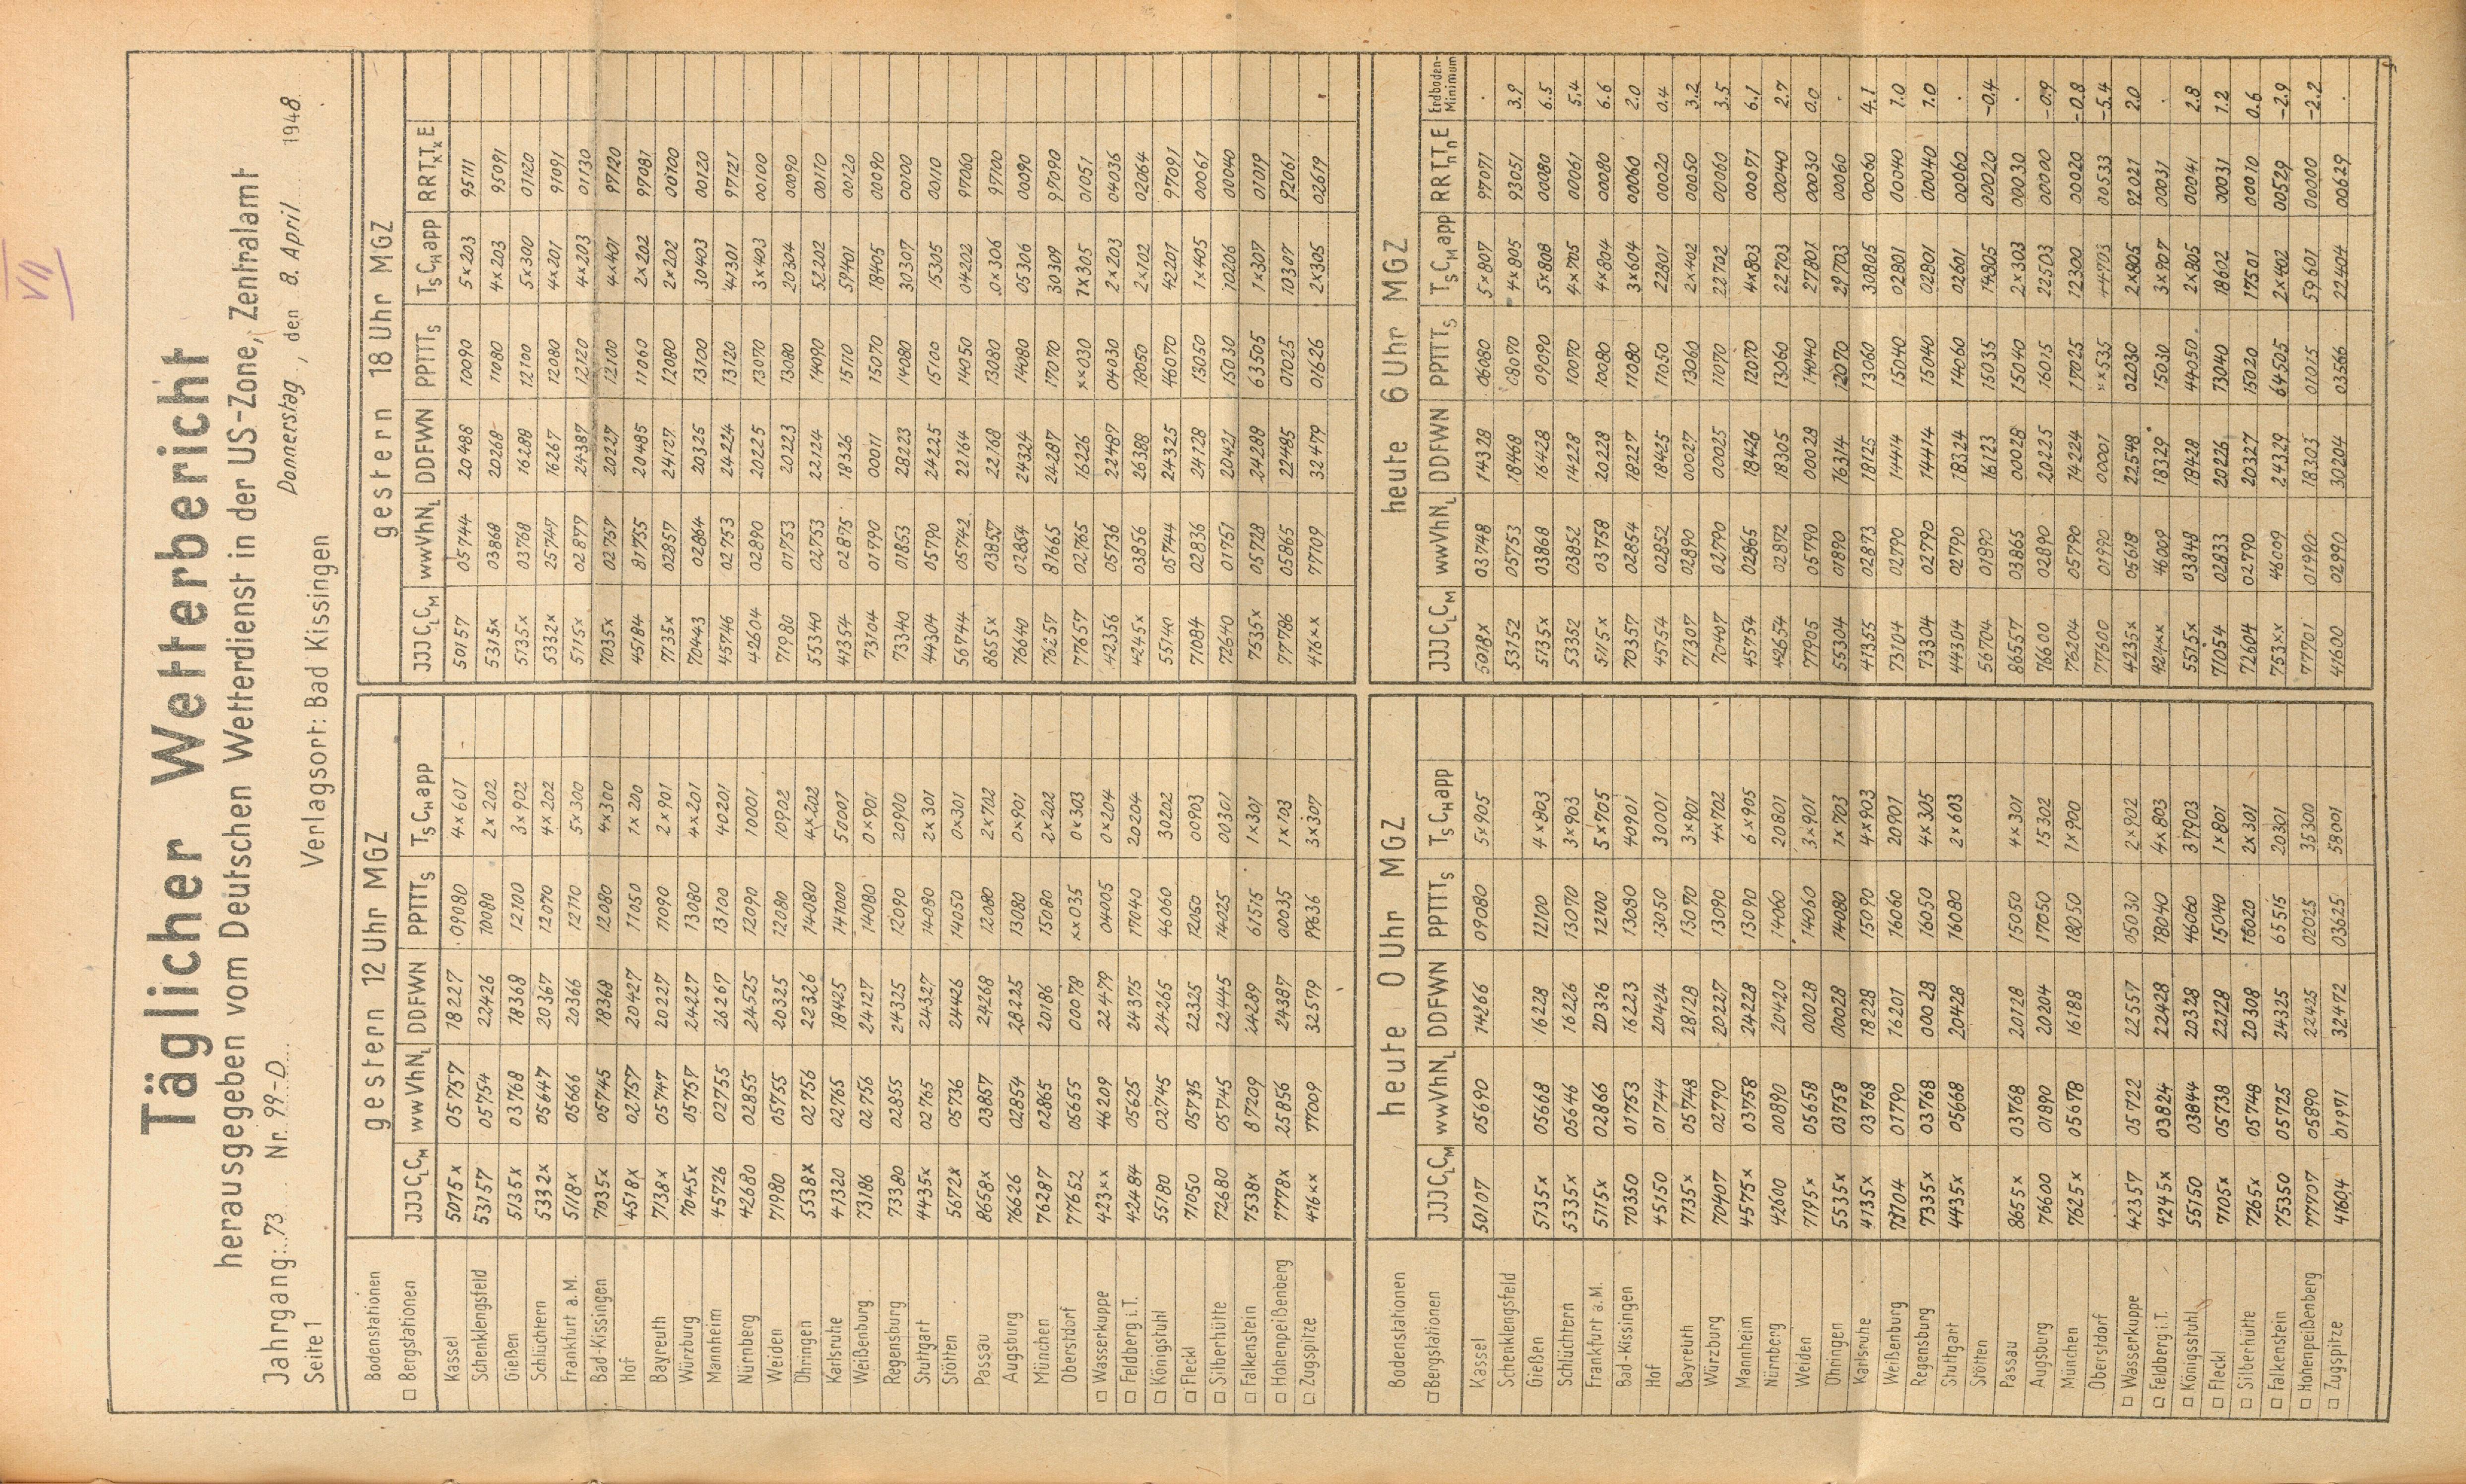 VII
Täglicher Wetterbericht
herausgegeben vom Deutschen Wetterdienst in der US-Zone, Zentralamt
Jahrgang: 73 Nr. 99-D Donnerstag, den 8. April 1948
Seite 1 Verlagsort: Bad Kissingen
Bodenstationen gestern 12 Uhr MGZ gestern 18 Uhr MGZ
□ Bergstationen JJJCLCM wwVhNL DDFWN PPTTTS TSCHapp JJJCLCM wwVhNL DDFWN PPTTTS TSCHapp RRTxTxE
Kassel 5015x 05757 18227 09080 4x601 50157 05744 20488 10090 5x203 95111
Schenklengsfeld 53157 05754 22426 10080 2x202 5315x 03868 20268 11080 4x203 95091
Gießen 5135x 03768 18368 12100 3x902 5135x 03768 16288 12100 5x300 01120
Schlüchtern 5332x 05647 20367 12070 4x202 5332x 25747 16267 12080 4x201 91091
Frankfurt a.M. 5118x 05666 20366 12110 5x300 5115x 02877 24387 12120 4x203 01130
Bad-Kissingen 7035x 05745 18368 12080 4x300 7035x 02757 20227 12100 4x401 97120
Hof 4518x 02757 20427 11050 1x200 45184 81755 20485 11060 2x202 97081
Bayreuth 7138x 05747 20227 11090 2x901 7135x 02857 24127 12080 2x202 00100
Würzburg 7045x 05757 24227 13080 4x201 70443 02864 20325 13100 30403 00120
Mannheim 45726 02755 26267 13100 40201 45746 02753 24224 13120 4x301 97121
Nürnberg 42680 02855 24525 12090 10001 42604 02890 20225 13070 3x403 00100
Weiden 71980 05755 20325 12080 10902 71980 01753 20223 13080 20304 00090
Öhringen 5538x 02756 22326 14080 4x202 55340 02753 22124 14090 52202 00110
Karlsruhe 41320 02765 18425 14100 50007 41354 02875 18326 15110 59401 00120
Weißenburg 73186 02756 24127 14080 0x901 73104 01790 00011 15070 18405 00090
Regensburg 73380 02855 24325 12090 20900 73340 01853 28223 14080 30307 00100
Stuttgart 4435x 02765 24327 14080 2x301 44304 05790 24225 15100 15305 00110
Stötten 5672x 05736 24426 14050 0x301 56744 05742 22164 14050 04202 97060
Passau 8658x 03857 24268 12080 2x702 8655x 03857 22168 13080 0x306 97100
Augsburg 76626 02854 28225 13080 0x901 76640 02854 24324 14080 05306 00090
München 76287 02865 20186 15080 2x202 76257 81665 24287 17070 30309 97090
Oberstdorf 77652 05655 00078 xx035 0x303 77657 02765 16226 xx030 1x305 01051
□ Wasserkuppe 423xx 46209 22479 04005 0x204 42356 05736 22487 04030 2x203 04036
□ Feldberg i.T. 42484 05625 24375 17040 20204 4245x 03856 26388 18050 2x702 02064
□ Königstuhl 55180 02745 24265 46060 30202 55140 05744 24325 46070 42201 97091
□ Fleckl 71050 05735 22325 12050 00903 71084 02836 24128 13050 1x405 00061
□ Silberhütte 72680 05745 22445 14025 00301 72640 01751 20421 15030 10206 00040
□ Falkenstein 7538x 87209 24289 61515 1x301 7535x 05728 24288 63505 1x307 01019
□ Hohenpeißenberg 7778x 25856 24387 00035 1x103 77786 05865 22485 01025 10307 92061
□ Zugspitze 416xx 77009 32579 99636 3x307 416xx 77109 32479 01626 2x305 02619
Bodenstationen heute 0 Uhr MGZ heute 6 Uhr MGZ
□ Bergstationen JJJCLCM wwVhNL DDFWN PPTTTS TSCHapp JJJCLCM wwVhNL DDFWN PPTTTS TSCMapp RRTnTnE Erdboden-Minimum
Kassel 50107 05690 14266 09080 5x905 5018x 03748 14328 06080 5x807 97071 .
Schenklengsfeld 53152 05753 18468 08070 4x905 93051 3.9
Gießen 5135x 05668 16228 12100 4x803 5135x 03868 16428 09090 5x808 00080 6.5
Schlüchtern 5335x 05646 16226 13070 3x903 53352 03852 14228 10070 4x705 00061 5.4
Frankfurt a.M. 5115x 02866 20326 12100 5x705 5115x 03758 20228 10080 4x804 00080 6.6
Bad-Kissingen 70350 01753 16223 13080 40901 70357 02854 18227 11080 3x604 00060 2.0
Hof 45150 01744 20424 13050 30001 45754 02852 18425 11050 22801 00020 0.4
Bayreuth 7135x 05748 28128 13070 3x901 71307 02890 00027 13060 2x402 00050 3.2
Würzburg 70407 02790 20227 13090 4x702 70407 02790 00025 11070 22702 00060 3.5
Mannheim 4575x 03758 24228 13090 6x905 45754 02865 18426 12070 4x803 00071 6.1
Nürnberg 42600 00890 20420 14060 20801 42654 02872 18305 13060 22703 00040 2.7
Weiden 7195x 05658 00028 14060 3x901 77905 05790 00028 14040 27801 00030 0.0
Öhringen 5535x 03758 00028 14080 1x703 55304 01890 16314 12070 29703 00060 .
Karlsruhe 4135x 03768 18228 15090 4x903 41355 02873 18125 13060 30805 00060 4.1
Weißenburg 73104 01790 16201 16060 20901 73104 02790 14414 15040 02801 00040 1.0
Regensburg 7335x 03768 00028 16050 4x305 73304 02790 14414 15040 02801 00040 1.0
Stuttgart 4435x 05668 20428 16080 2x603 44304 02790 18324 14060 02601 00060 .
Stötten 56704 01890 16123 15035 14805 00020 -0.4
Passau 8655x 03768 20128 15050 4x301 86557 03865 00028 15040 2x303 00030 .
Augsburg 76600 01890 20204 17050 15302 76600 02890 20225 16015 22503 00000 -0.9
München 7625x 05678 16188 18050 1x900 76204 05790 14224 17025 12300 00020 -0.8
Oberstdorf 77600 01990 00001 44703 00533 -5.4
□ Wasserkuppe 42357 05722 22557 05030 2x902 4235x 05618 22548 02030 2x805 92021 2.0
□ Feldberg i.T. 4245x 03824 22428 18040 4x803 424xx 46009 18329 15030 3x907 00031 .
□ Königsstuhl 55150 03844 20328 46060 37903 5515x 03848 18428 44050 2x805 00041 2.8
□ Fleckl 7105x 05738 22128 15040 1x801 71054 02833 20226 73040 18602 00031 1.2
□ Silberhütte 7265x 05748 20308 16020 2x301 72604 02790 20327 15020 17501 00010 0.6
□ Falkenstein 75350 05725 24325 65515 20301 753xx 46009 24329 64505 2x402 00529 -2.9
□ Hohenpeißenberg 77707 05890 22425 02025 35300 77701 01990 18303 01015 59601 00000 -2.2
□ Zugspitze 41604 01971 32472 03625 58001 41600 02990 30204 03566 22404 00629 .